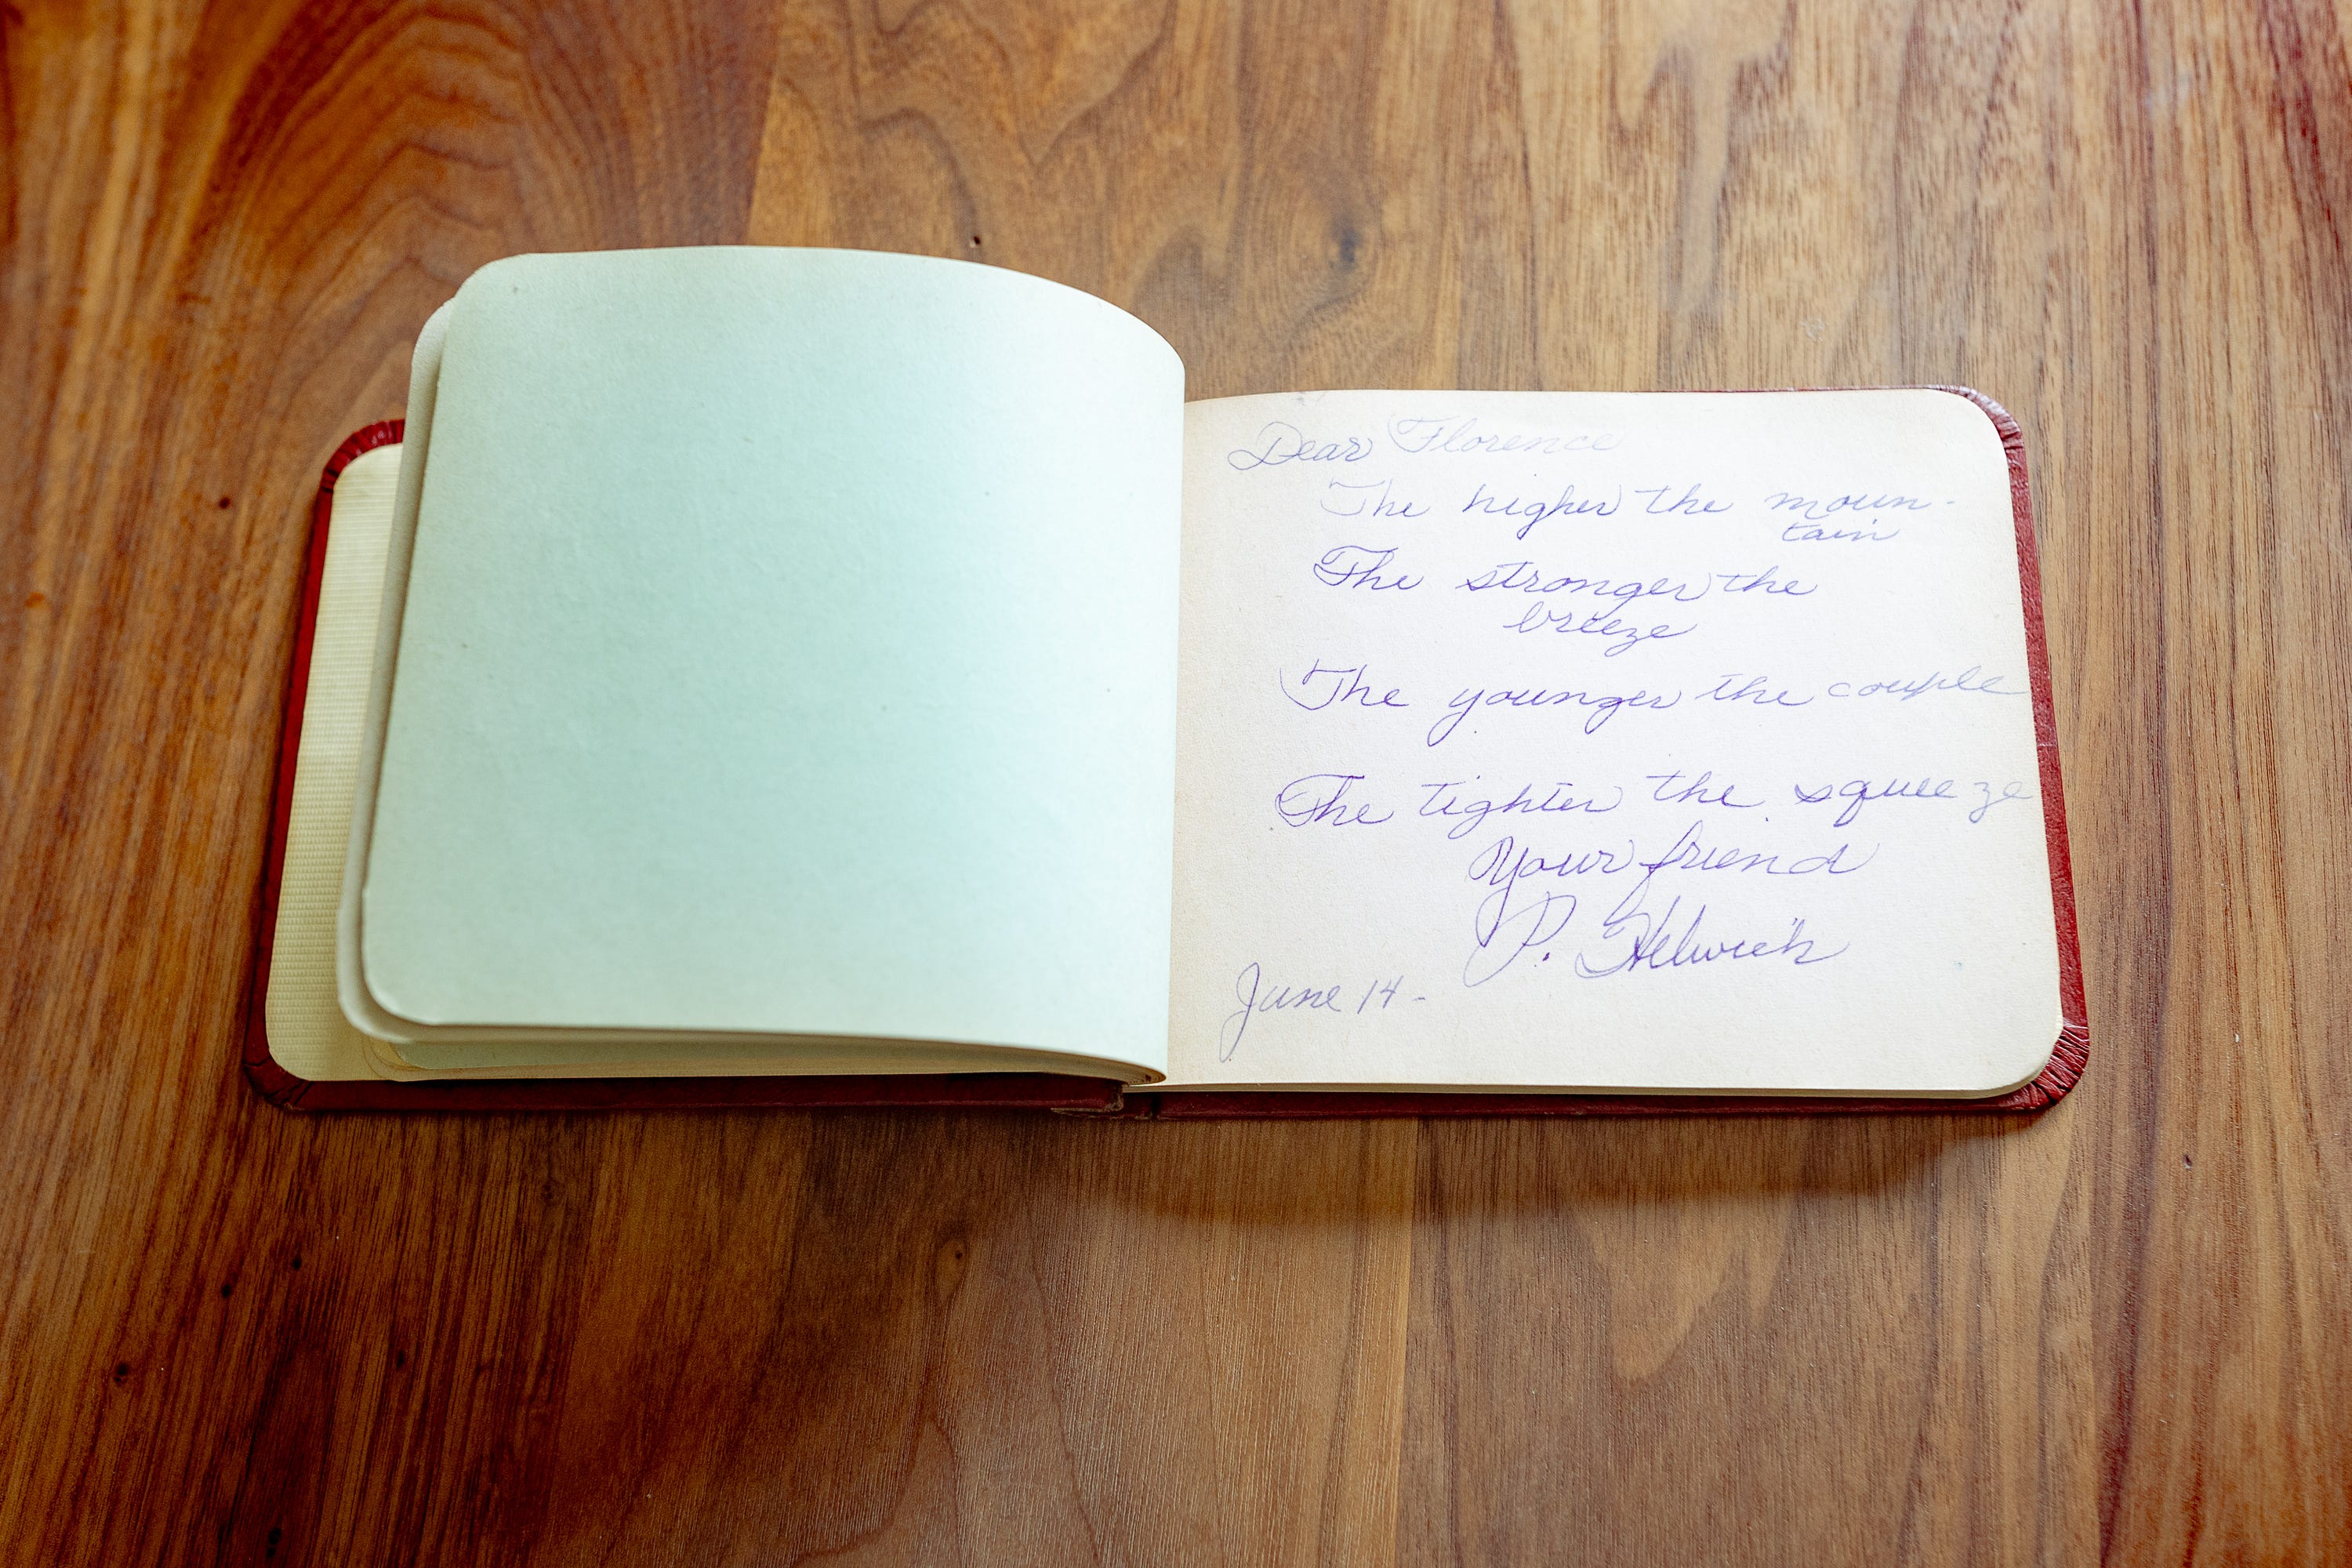 Dear Florence
The higher the moun-
tain
The stronger the
breeze
The younger the couple
The tighter the squeeze
Your friend
P. Helwich
June 14-